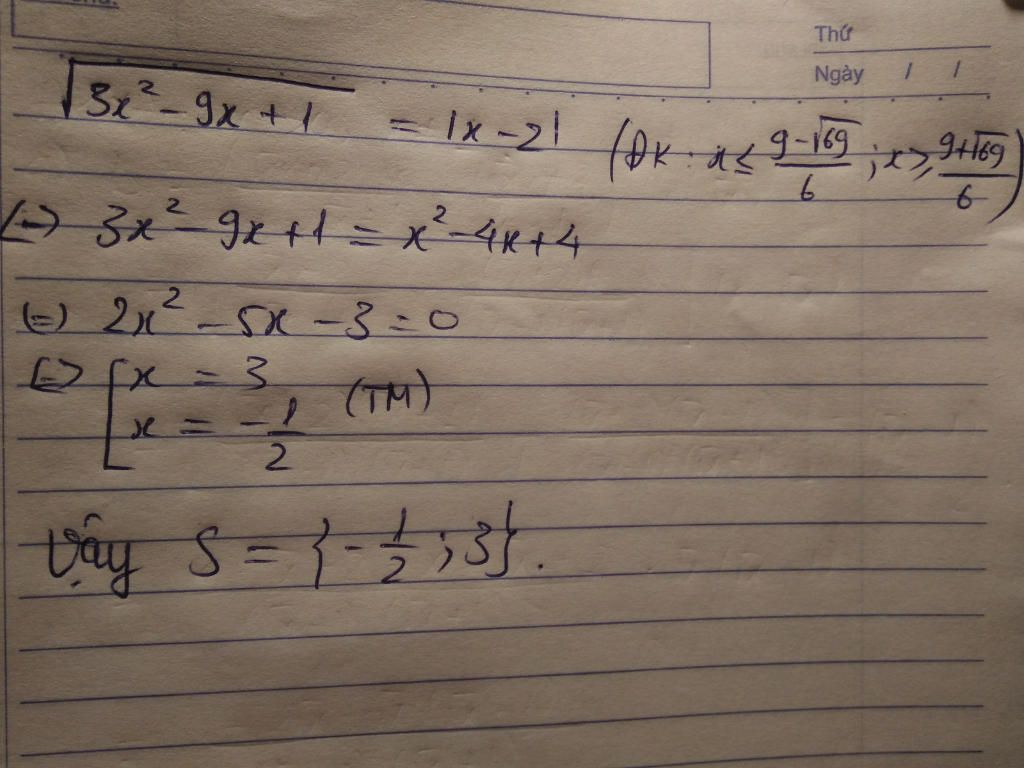 Thứ
Ngày / /
√(3x² - 9x + 1) = |x - 2| (ĐK: x ≤ (9 - √69)/6 ; x ≥ (9 + √69)/6)
(=) 3x² - 9x + 1 = x² - 4x + 4
(=) 2x² - 5x - 3 = 0
(=) [ x = 3
x = -1/2 (TM)
Vậy S = {-1/2 ; 3}.